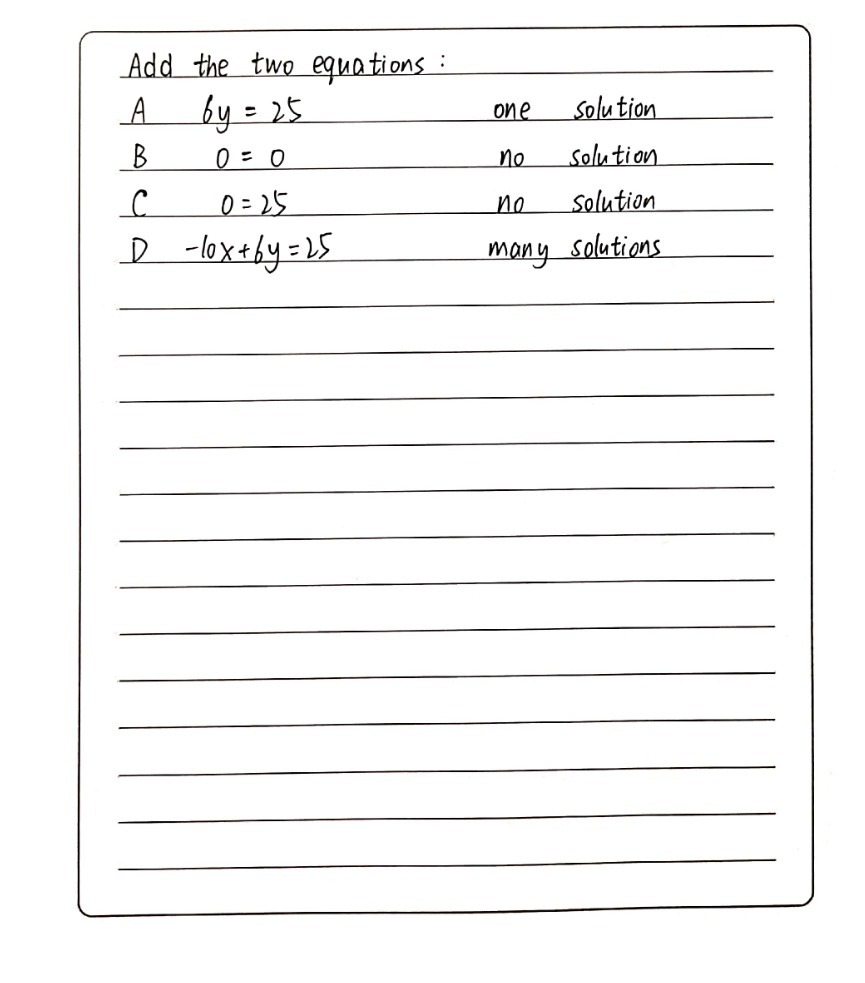 Add the two equations :
A 6y = 25 one solution
B 0 = 0 no solution
C 0 = 25 no solution
D -10x+6y=25 many solutions